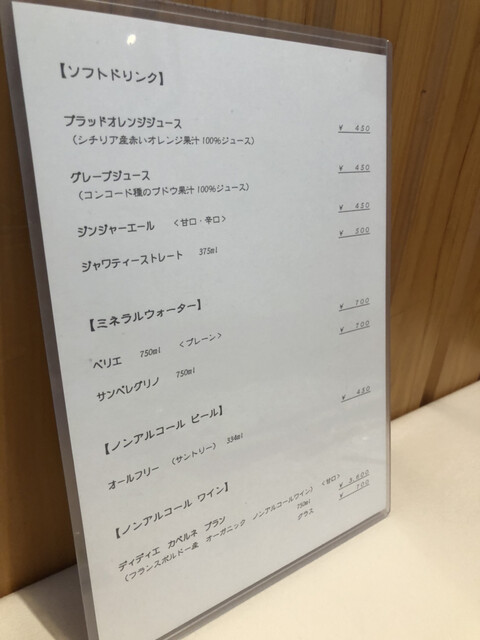 【ソフトドリンク】
ブラッドオレンジジュース ¥ 450
（シチリア産赤いオレンジ果汁100%ジュース）
グレープジュース ¥ 450
（コンコード種のブドウ果汁100%ジュース）
ジンジャーエール ＜甘口・辛口＞ ¥ 450
ジャワティーストレート 375ml ¥ 500
【ミネラルウォーター】
ペリエ 750ml ＜プレーン＞ ¥ 700
サンペレグリノ 750ml ¥ 700
【ノンアルコール ビール】
オールフリー （サントリー） 334ml ¥ 450
【ノンアルコール ワイン】
ディディエ カベルネ ブラン ＜甘口＞ ¥ 3,800
（フランスボルドー産 オーガニック ノンアルコールワイン） 750ml ¥ 700
グラス